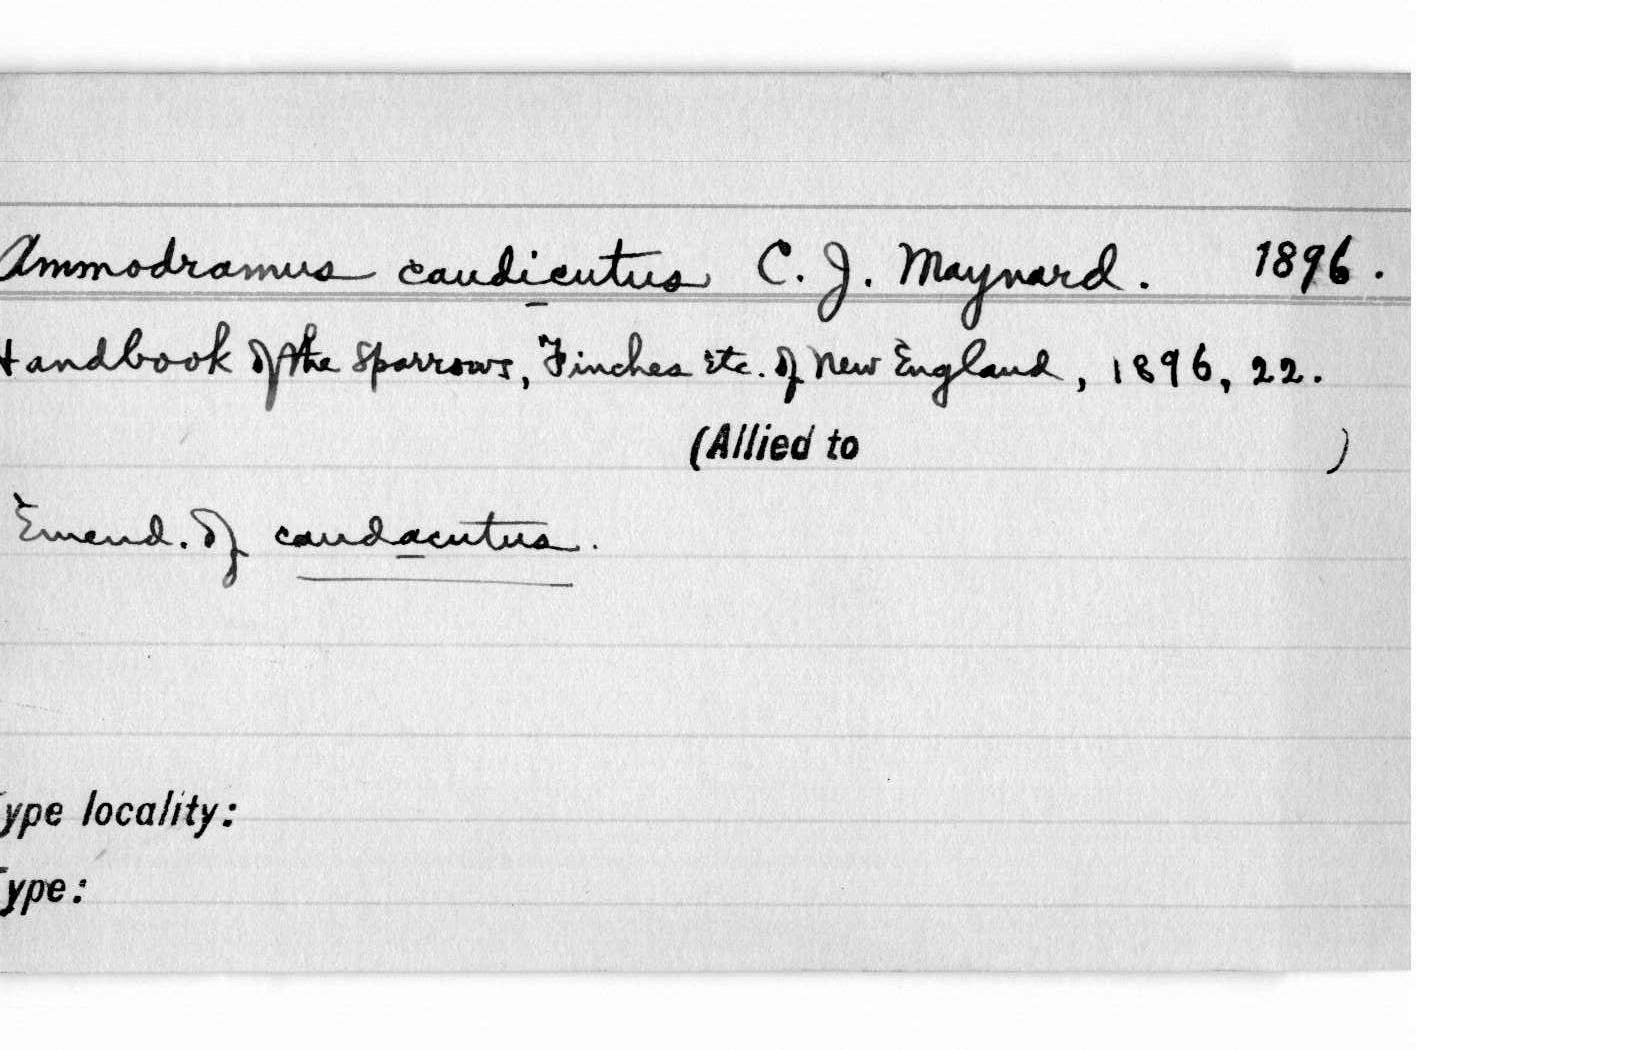 Ammodramus caudicutus C. J. Maynard. 1896.
Handbook of the Sparrows, Finches Etc. of New England, 1896, 22.
(Allied to )
Emend. of caudacutus.
ype locality:
ype: